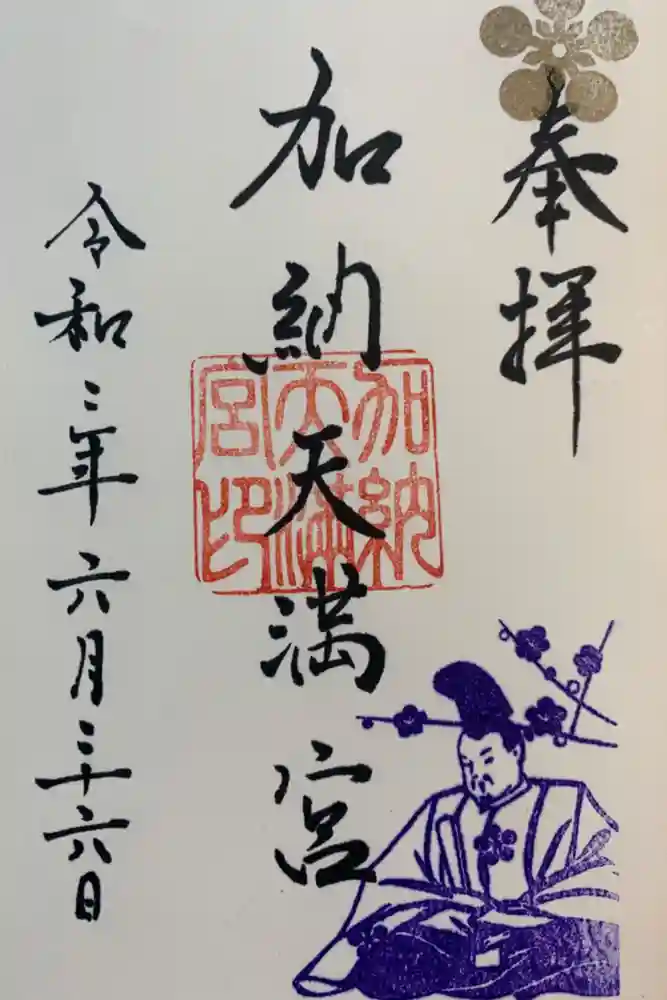 奉拝
加納天満宮
加納
天満
宮印
令和三年六月二十六日